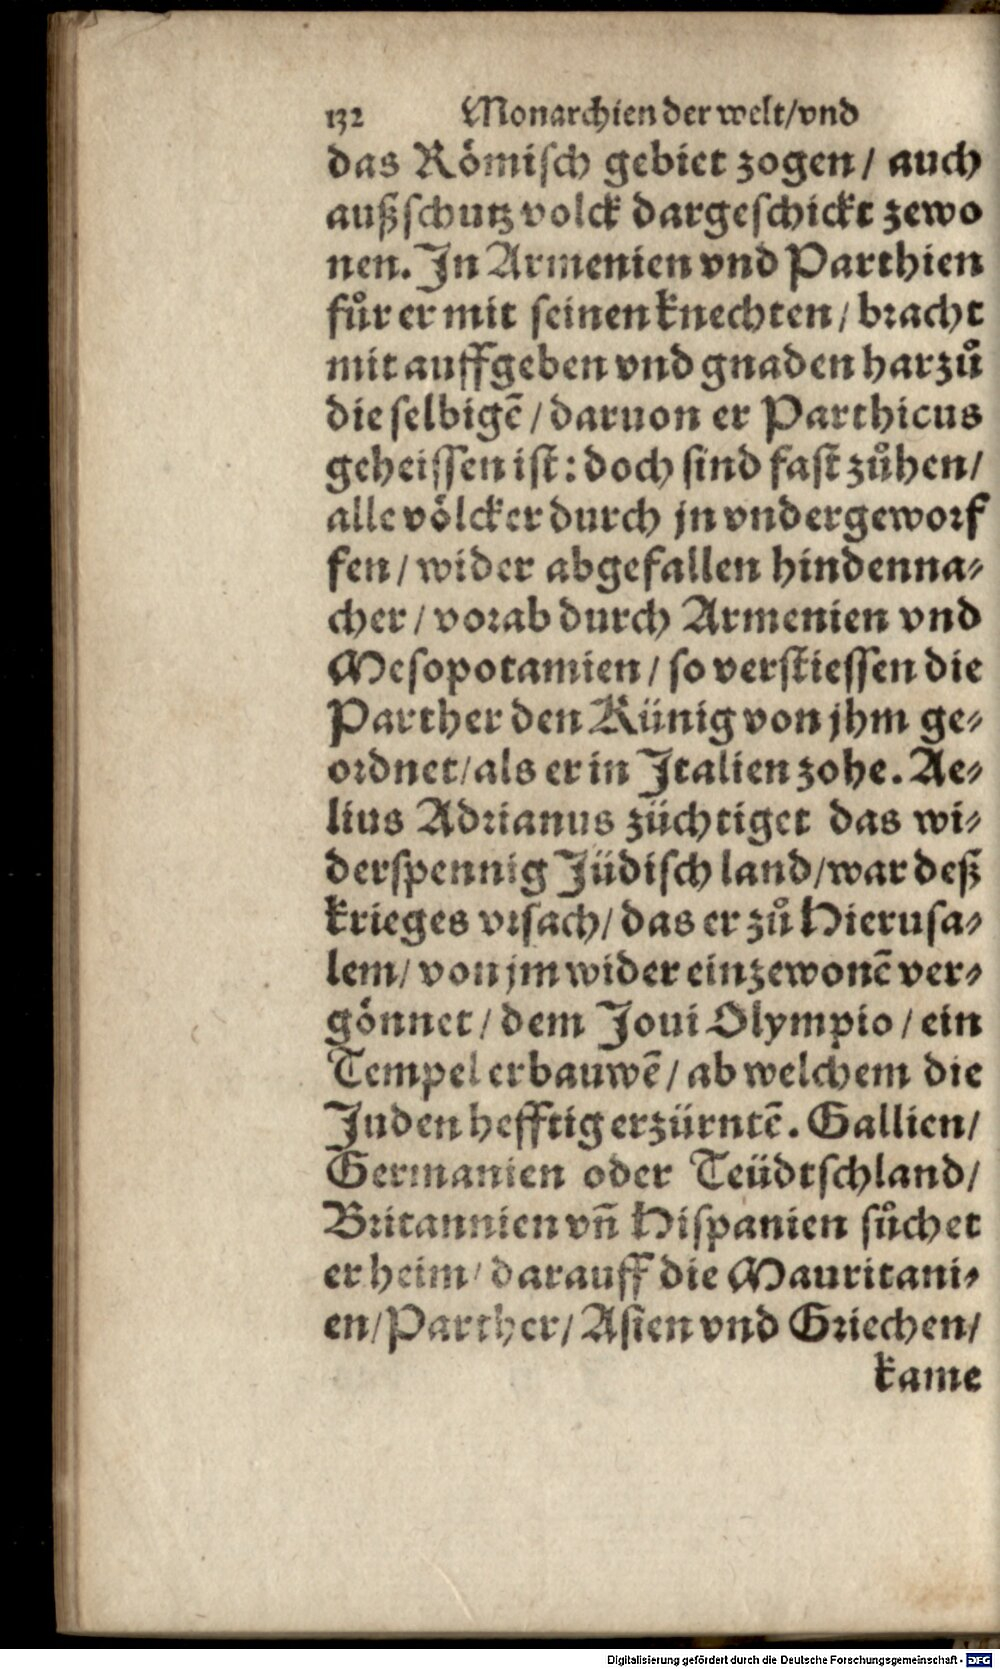 132 Monarchien der welt/vnd
das Römisch gebiet zogen/ auch
außschutz volck dargeschickt zewo
nen. In Armenien vnd Parthien
fůr er mit seinen knechten/ bracht
mit auffgeben vnd gnaden harzů
die selbigē/ daruon er Parthicus
geheissen ist: doch sind fast zůhen/
alle völcker durch jn vndergeworf
fen/ wider abgefallen hindenna⸗
cher/ vorab durch Armenien vnd
Mesopotamien/ so verstiessen die
Parther den Künig von jhm ge⸗
ordnet/ als er in Italien zohe. Ae⸗
lius Adrianus züchtiget das wi⸗
derspennig Jüdisch land/ war deß
krieges vrsach/ das er zů Hierusa⸗
lem/ von jm wider einzewonē ver⸗
gönnet/ dem Joui Olympio/ ein
Tempel erbauwē/ ab welchem die
Juden hefftig erzürntē. Gallien/
Germanien oder Teüdtschland/
Britannien vñ Hispanien sůchet
er heim/ darauff die Mauritani⸗
en/ Parther/ Asien vnd Griechen/
kame
Digitalisierung gefördert durch die Deutsche Forschungsgemeinschaft - DFG